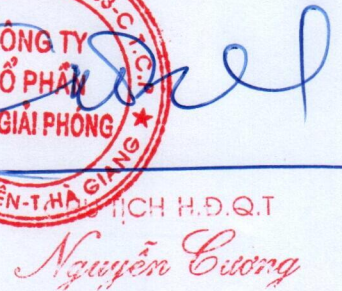 ÔNG TY
Ổ PHẦN
GIẢI PHÓNG
T.HÀ GIANG
TỊCH H.Đ.Q.T
Nguyễn Cương